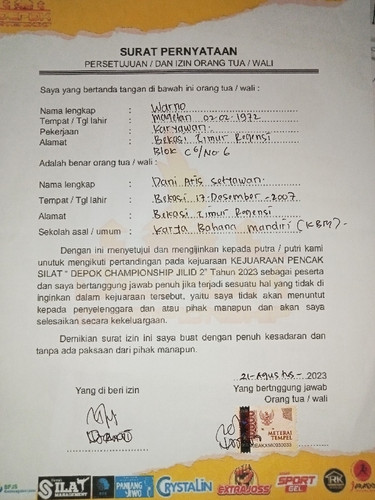 SURAT PERNYATAAN
PERSETUJUAN / DAN IZIN ORANG TUA / WALI
Saya yang bertanda tangan di bawah ini orang tua / wali :
Nama lengkap : Warno
Tempat / Tgl lahir : Magetan 02-02-1972
Pekerjaan : Karyawan
Alamat : Bekasi Timur Regensi
Blok C6/No 6
Adalah benar orang tua / wali :
Nama lengkap : Dani Aris Setyawan
Tempat / Tgl lahir : Bekasi 17-Desember-2007
Alamat : Bekasi Timur Regensi
Sekolah asal / umum : Karya Bahana Mandiri (KBM)
Dengan ini menyetujui dan mengijinkan kepada putra / putri kami
unutuk mengikuti pertandingan pada kejuaraan KEJUARAAN PENCAK
SILAT " DEPOK CHAMPIONSHIP JILID 2" Tahun 2023 sebagai peserta
dan saya bertanggung jawab penuh jika terjadi sesuatu hal yang tidak di
inginkan dalam kejuaraan tersebut, yaitu saya tidak akan menuntut
kepada penyelenggara dan atau pihak manapun dan akan saya
selesaikan secara kekeluargaan.
Demikian surat izin ini saya buat dengan penuh kesadaran dan
tanpa ada paksaan dari pihak manapun.
21-Agustus - 2023
Yang di beri izin
Yang bertnggung jawab
Orang tua / wali
METERAI
TEMPEL
BPJS
SILAT
MANAGEMENT
PANJANG
JIWO
CRYSTALIN
EXTRAJOSS
SPORT
GEL
RK